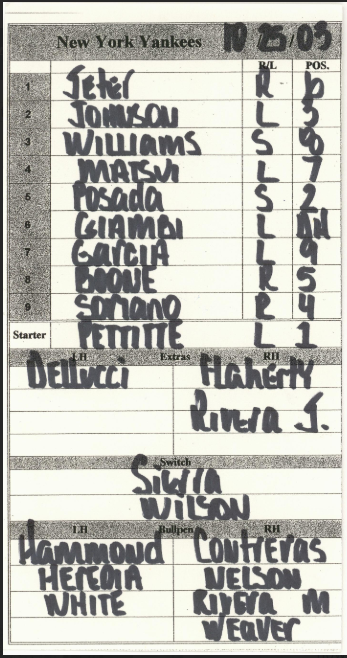 New York Yankees 10/25/03
R/L POS.
1 Jeter R 6
2 JOHNSON L 3
3 WILLIAMS S 8
4 MATSUI L 7
5 Posada S 2
6 GIAMBI L DH
7 GarciA L 9
8 BOONE R 5
9 Soriano R 4
Starter PETTITTE L 1
LH Extras RH
Dellucci Flaherty
Rivera J.
Switch
Sierra
WILSON
LH Bullpen RH
Hammond Contreras
HEREDIA NELSON
WHITE Rivera M
WEAVER